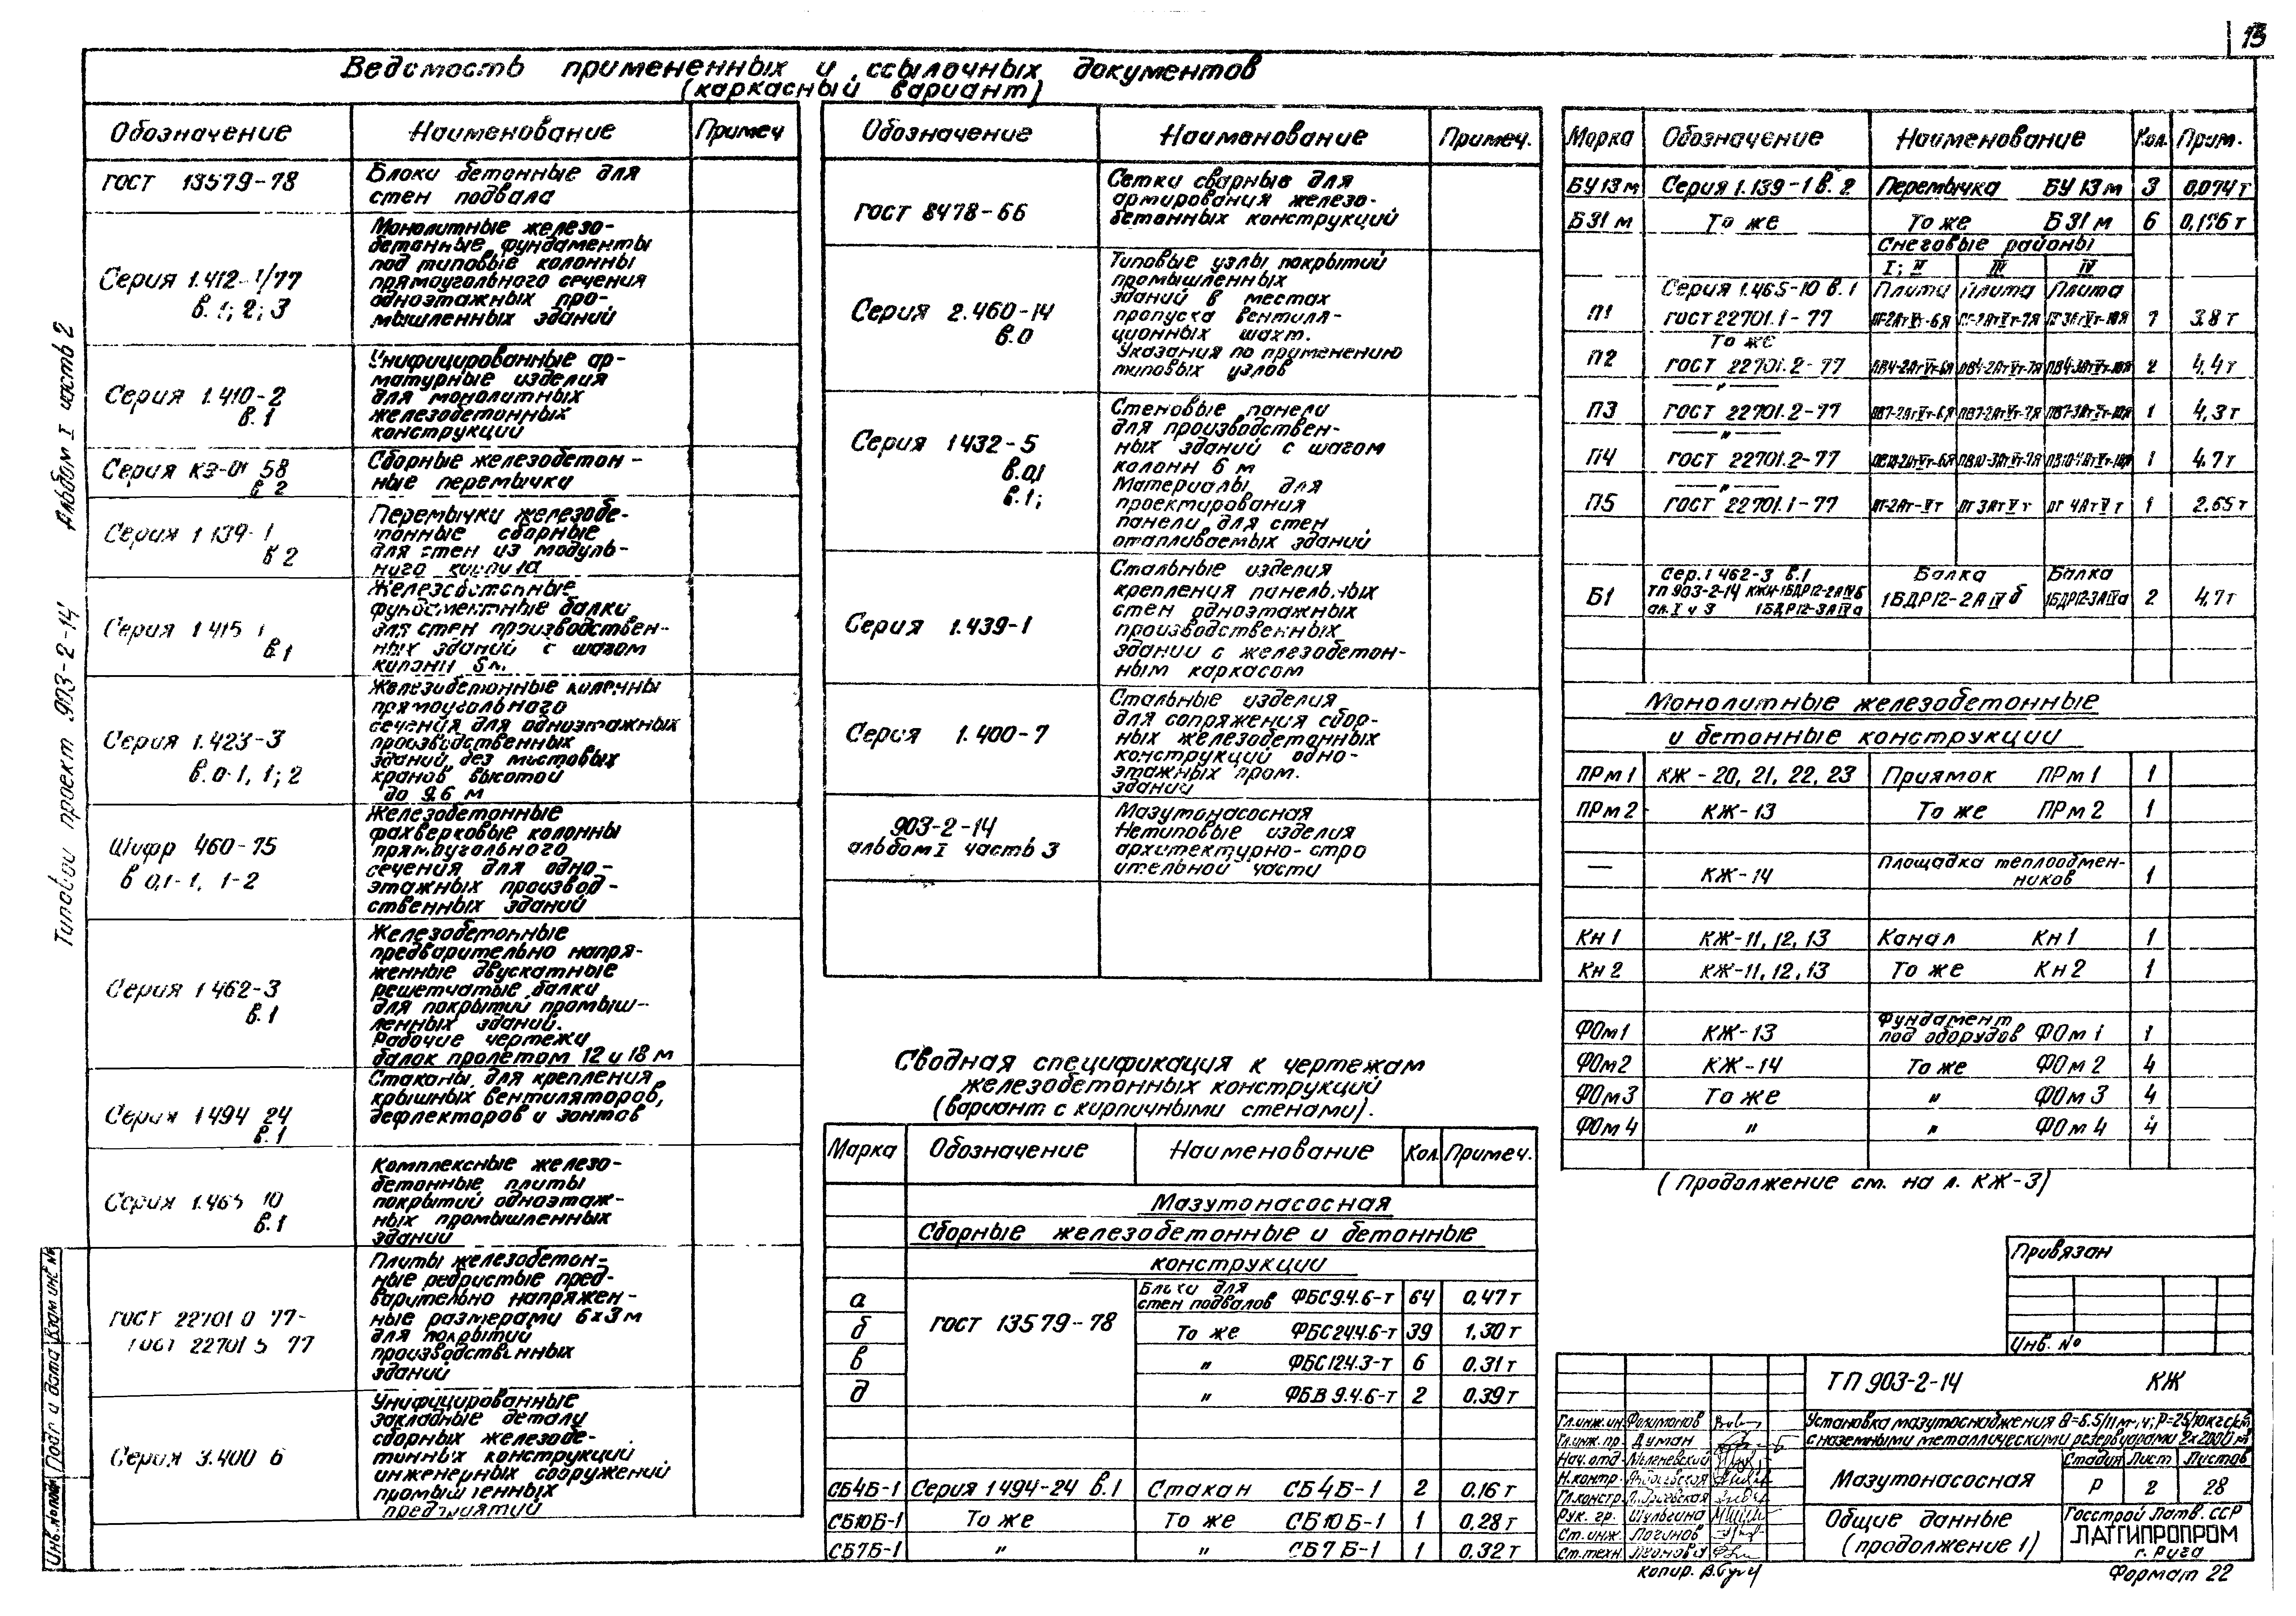 15
Ведомость примененных и ссылочных документов
(каркасный вариант)
Обозначение Наименование Примеч
ГОСТ 13579-78 Блоки бетонные для
стен подвала
Серия 1.412-1/77
в. 1; 2; 3
Монолитные железо-
бетонные фундаменты
под типовые колонны
прямоугольного сечения
одноэтажных про-
мышленных зданий
Серия 1.410-2
в.1
Унифицированные ар-
матурные изделия
для монолитных
железобетонных
конструкций
Серия КЭ-01 58
в 2
Сборные железобетон-
ные перемычки
Серия 1 139-1
в 2
Перемычки железобе-
тонные сборные
для стен из модуль-
ного кирпича
Серия 1 415 1
в.1
Железобетонные
фундаментные балки
для стен производствен-
ных зданий с шагом
колонн 6м.
Серия 1.423-3
в.0-1, 1; 2
Железобетонные колонны
прямоугольного
сечения для одноэтажных
производственных
зданий без мостовых
кранов высотой
до 9.6 м
Шифр 460-75
в 0,1-1, 1-2
Железобетонные
фахверковые колонны
прямоугольного
сечения для одно-
этажных производ-
ственных зданий
Серия 1 462-3
в.1
Железобетонные
предварительно напря-
женные двускатные
решетчатые балки
для покрытий промыш-
ленных зданий.
Рабочие чертежи
балок пролетом 12 и 18 м
Серия 1 494 24
в.1
Стаканы для крепления
крышных вентиляторов,
дефлекторов и зонтов
Серия 1.465 10
в.1
Комплексные железо-
бетонные плиты
покрытий одноэтаж-
ных промышленных
зданий
ГОСТ 22701 0 77-
ГОСТ 22701 5 77
Плиты железобетон-
ные ребристые пред-
варительно напряжен-
ные размерами 6×3 м
для покрытий
производственных
зданий
Серия 3.400 6
Унифицированные
закладные детали
сборных железобе-
тонных конструкций
инженерных сооружений
промышленных
предприятий
Обозначение Наименование Примеч.
ГОСТ 8478-66
Сетки сварные для
армирования железо-
бетонных конструкций
Серия 2.460-14
в.0
Типовые узлы покрытий
промышленных
зданий в местах
пропуска вентиля-
ционных шахт.
Указания по применению
типовых узлов
Серия 1 432-5
в.0,1
в.1;
Стеновые панели
для производствен-
ных зданий с шагом
колонн 6 м
Материалы для
проектирования
панели для стен
отапливаемых зданий
Серия 1.439-1
Стальные изделия
крепления панельных
стен одноэтажных
производственных
зданий с железобетон-
ным каркасом
Серия 1.400-7
Стальные изделия
для сопряжения сбор-
ных железобетонных
конструкций одно-
этажных пром.
зданий
903-2-14
альбом I часть 3
Мазутонасосная
Нетиповые изделия
архитектурно-стро
ительной части
Сводная спецификация к чертежам
железобетонных конструкций
(вариант с кирпичными стенами).
Марка Обозначение Наименование Кол. Примеч.
Мазутонасосная
Сборные железобетонные и бетонные
конструкции
а ГОСТ 13579-78 Блоки для стен подвалов ФБС9.4.6-т 64 0,47 т
б То же ФБС24.4.6-т 39 1,30 т
в " ФБС12.4.3-т 6 0.31 т
д " ФБВ 9.4.6-т 2 0.39 т
СБ4Б-1 Серия 1 494-24 в.1 Стакан СБ4Б-1 2 0,16 т
СБ10Б-1 То же То же СБ10Б-1 1 0,28 т
СБ7Б-1 " " СБ7Б-1 1 0.32 т
Марка Обозначение Наименование Кол. Прим.
БУ13м Серия 1.139-1 в. 2 Перемычка БУ13м 3 0,074 т
Б31м То же То же Б31м 6 0,176 т
Снеговые районы
I; II III IV
Серия 1.465-10 в.1 Плита Плита Плита
П1 ГОСТ 22701.1-77 7 3.8 т
То же
П2 ГОСТ 22701.2-77 2 4,4 т
"
П3 ГОСТ 22701.2-77 1 4,3 т
"
П4 ГОСТ 22701.2-77 1 4.7 т
"
П5 ГОСТ 22701.1-77 ПГ-2Ат-Vт ПГ 3АтV т ПГ 4АтV т 1 2.65 т
Сер.1 462-3 в.1 Балка Балка
Б1 ТП 903-2-14 КЖИ-1БДР12-2АIVб 1БДР12-2АIVб 1БДР12-3АIVа 2 4,7 т
ал.I ч 3 1БДР12-3АIVа
Монолитные железобетонные
и бетонные конструкции
ПРм1 КЖ-20, 21, 22, 23 Приямок ПРм1 1
ПРм2 КЖ-13 То же ПРм2 1
— КЖ-14 Площадка теплообмен-
ников 1
Кн1 КЖ-11, 12, 13 Канал Кн1 1
Кн2 КЖ-11, 12, 13 То же Кн2 1
ФОм1 КЖ-13 Фундамент
под оборудов ФОм1 1
ФОм2 КЖ-14 То же ФОм2 4
ФОм3 То же " ФОм3 4
ФОм4 " " ФОм4 4
(Продолжение см. на л. КЖ-3)
Привязан
Инв. №
ТП 903-2-14 КЖ
Установка мазутоснабжения
с наземными металлическими резервуарами
Гл.инж.ин. Филимонов
Гл.инж.пр. Думан
Нач.отд.
Н.контр.
Гл.констр.
Рук. гр. Шульгина
Ст.инж. Логинов
Ст.техн. Леонова
Мазутонасосная
Стадия Лист Листов
Р 2 28
Общие данные
(продолжение 1)
Госстрой Латв. ССР
ЛАТГИПРОПРОМ
г. Рига
Копир.
Формат 22
Типовой проект 903-2-14 Альбом I часть 2
Инв.№подл Подп и дата Взам инв №